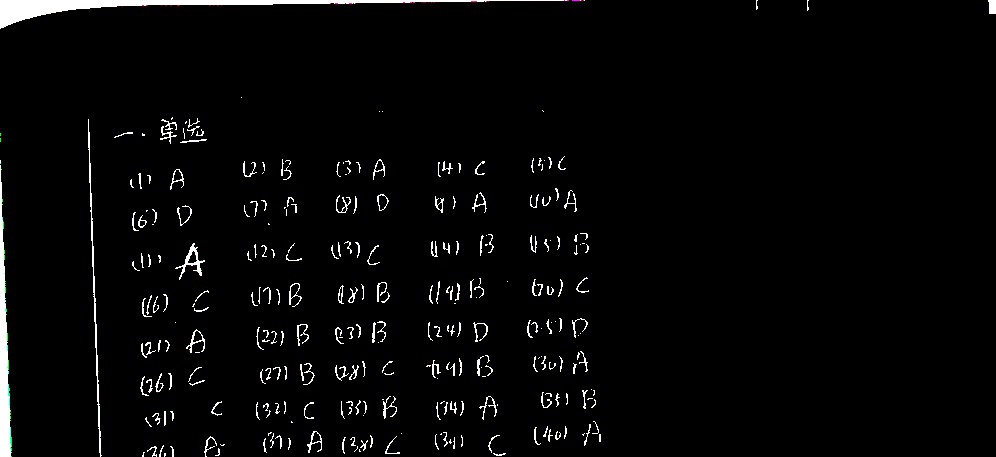 一.单选
(1) A (2) B (3) A (4) C (5) C
(6) D (7) A (8) D (9) A (10) A
(11) A (12) C (13) C (14) B (15) B
(16) C (17) B (18) B (19) B (20) C
(21) A (22) B (23) B (24) D (25) D
(26) C (27) B (28) C (29) B (30) A
(31) C (32) C (33) B (34) A (35) B
(36) A (37) A (38) C (39) C (40) A